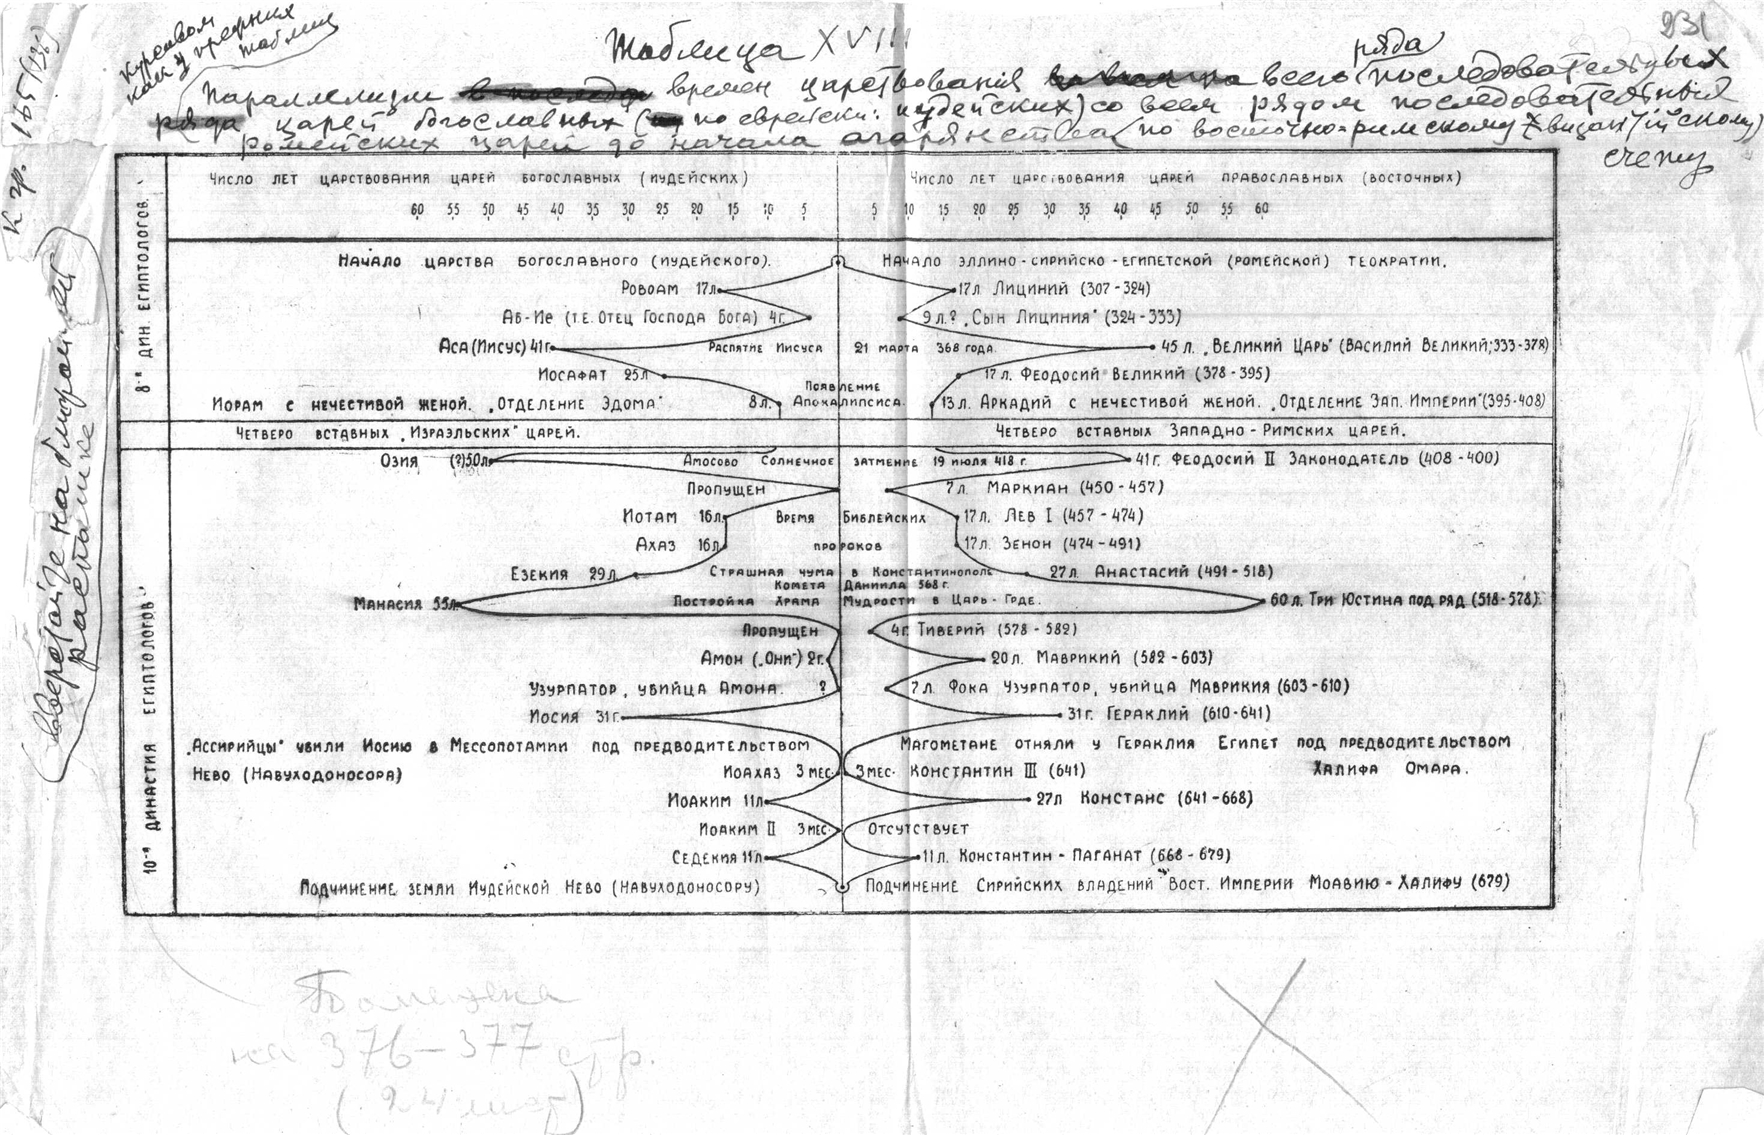 231
Курсивом
как у прежних
таблиц
К гр. 165 (136)
Таблица XVIII
Параллелизм времен царствования всего ряда последовательных
ряда царей богославных (по еврейски: иудейских) со всем рядом последовательных
ромейских царей до начала агарянства (по восточно-римскому (византийскому)
счету
на обороте
растяжке
8-я ДИН. ЕГИПТОЛОГОВ.
ЧИСЛО ЛЕТ ЦАРСТВОВАНИЯ ЦАРЕЙ БОГОСЛАВНЫХ (ИУДЕЙСКИХ) ЧИСЛО ЛЕТ ЦАРСТВОВАНИЯ ЦАРЕЙ ПРАВОСЛАВНЫХ (ВОСТОЧНЫХ)
60 55 50 45 40 35 30 25 20 15 10 5 5 10 15 20 25 30 35 40 45 50 55 60
НАЧАЛО ЦАРСТВА БОГОСЛАВНОГО (ИУДЕЙСКОГО). НАЧАЛО ЭЛЛИНО-СИРИЙСКО-ЕГИПЕТСКОЙ (РОМЕЙСКОЙ) ТЕОКРАТИИ.
РОВОАМ 17л. 17л ЛИЦИНИЙ (307-324)
АБ-ИЕ (Т.Е. ОТЕЦ ГОСПОДА БОГА) 4г. 9л.? „СЫН ЛИЦИНИЯ" (324-333)
АСА (ИИСУС) 41г. РАСПЯТИЕ ИИСУСА 21 МАРТА 368 ГОДА. 45 Л. „ВЕЛИКИЙ ЦАРЬ" (ВАСИЛИЙ ВЕЛИКИЙ; 333-378)
ИОСАФАТ 25л 17л. ФЕОДОСИЙ ВЕЛИКИЙ (378-395)
ПОЯВЛЕНИЕ
ИОРАМ С НЕЧЕСТИВОЙ ЖЕНОЙ. „ОТДЕЛЕНИЕ ЭДОМА" 8л. АПОКАЛИПСИСА. 13л. АРКАДИЙ С НЕЧЕСТИВОЙ ЖЕНОЙ. „ОТДЕЛЕНИЕ ЗАП. ИМПЕРИИ" (395-408)
ЧЕТВЕРО ВСТАВНЫХ „ИЗРАЭЛЬСКИХ" ЦАРЕЙ. ЧЕТВЕРО ВСТАВНЫХ ЗАПАДНО-РИМСКИХ ЦАРЕЙ.
10-я ДИНАСТИЯ ЕГИПТОЛОГОВ."
ОЗИЯ (?)50л АМОСОВО СОЛНЕЧНОЕ ЗАТМЕНИЕ 19 ИЮЛЯ 418 г. 41г. ФЕОДОСИЙ II ЗАКОНОДАТЕЛЬ (408-400)
ПРОПУЩЕН 7л. МАРКИАН (450-457)
ИОТАМ 16л. ВРЕМЯ БИБЛЕЙСКИХ 17л. ЛЕВ I (457-474)
АХАЗ 16л. ПРОРОКОВ 17л. ЗЕНОН (474-491)
ЕЗЕКИЯ 29л. СТРАШНАЯ ЧУМА В КОНСТАНТИНОПОЛЕ 27л. АНАСТАСИЙ (491-518)
КОМЕТА ДАНИИЛА 568 г.
МАНАСИЯ 55л ПОСТРОЙКА ХРАМА МУДРОСТИ В ЦАРЬ-ГРДЕ. 60л. ТРИ ЮСТИНА ПОД РЯД (518-578).
ПРОПУЩЕН 4г. ТИВЕРИЙ (578-582)
АМОН („ОНИ") 2г. 20л. МАВРИКИЙ (582-603)
УЗУРПАТОР, УБИЙЦА АМОНА. ? 7л. ФОКА УЗУРПАТОР, УБИЙЦА МАВРИКИЯ (603-610)
ИОСИЯ 31г. 31г. ГЕРАКЛИЙ (610-641)
„АССИРИЙЦЫ" УБИЛИ ИОСИЮ В МЕССОПОТАМИИ ПОД ПРЕДВОДИТЕЛЬСТВОМ МАГОМЕТАНЕ ОТНЯЛИ У ГЕРАКЛИЯ ЕГИПЕТ ПОД ПРЕДВОДИТЕЛЬСТВОМ
НЕВО (НАВУХОДОНОСОРА) ИОАХАЗ 3 МЕС. 3 МЕС. КОНСТАНТИН III (641) ХАЛИФА ОМАРА.
ИОАКИМ 11л. 27л КОНСТАНС (641-668)
ИОАКИМ II 3 МЕС. ОТСУТСТВУЕТ
СЕДЕКИЯ 11л. 11л. КОНСТАНТИН-ПАГАНАТ (668-679)
ПОДЧИНЕНИЕ ЗЕМЛИ ИУДЕЙСКОЙ НЕВО (НАВУХОДОНОСОРУ) ПОДЧИНЕНИЕ СИРИЙСКИХ ВЛАДЕНИЙ ВОСТ. ИМПЕРИИ МОАВИЮ-ХАЛИФУ (679)
на 376-377 стр.
(24 лист)